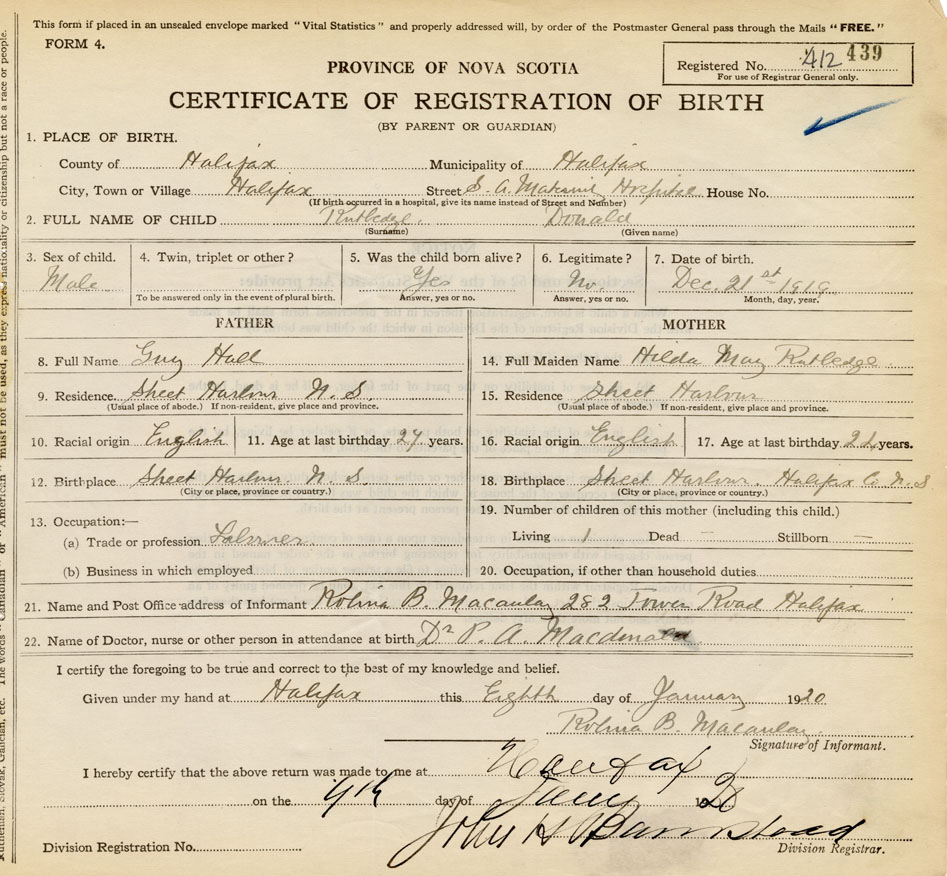 This form if placed in an unsealed envelope marked "Vital Statistics" and properly addressed will, by order of the Postmaster General pass through the Mails "FREE."
FORM 4.
Registered No. 412 439
For use of Registrar General only.
PROVINCE OF NOVA SCOTIA
CERTIFICATE OF REGISTRATION OF BIRTH
(BY PARENT OR GUARDIAN)
1. PLACE OF BIRTH.
County of Halifax Municipality of Halifax
City, Town or Village Halifax Street S. A. Maternity Hospital House No.
(If birth occurred in a hospital, give its name instead of Street and Number)
2. FULL NAME OF CHILD Rutledge. Donald
(Surname) (Given name)
3. Sex of child. 4. Twin, triplet or other? 5. Was the child born alive? 6. Legitimate? 7. Date of birth.
Male Yes No. Dec. 21st 1919
To be answered only in the event of plural birth. Answer, yes or no. Answer, yes or no. Month, day, year.
FATHER MOTHER
8. Full Name Guy Hall 14. Full Maiden Name Hilda May Rutledge
9. Residence Sheet Harbour N. S. 15. Residence Sheet Harbour
(Usual place of abode.) If non-resident, give place and province. (Usual place of abode.) If non-resident, give place and province.
10. Racial origin English 11. Age at last birthday 27 years. 16. Racial origin English 17. Age at last birthday years.
12. Birthplace Sheet Harbour. N. S. 18. Birthplace Sheet Harbour. Halifax Co N. S
(City or place, province or country.) (City or place, province or country.)
13. Occupation:— 19. Number of children of this mother (including this child.)
(a) Trade or profession Labourer Living 1 Dead — Stillborn —
(b) Business in which employed 20. Occupation, if other than household duties
21. Name and Post Office address of Informant Rolina B. Macaulay 282 Tower Road Halifax
22. Name of Doctor, nurse or other person in attendance at birth Dr P. A. Macdonald
I certify the foregoing to be true and correct to the best of my knowledge and belief.
Given under my hand at Halifax this Eighth day of January 1920
Rolina B. Macaulay.
Signature of Informant.
I hereby certify that the above return was made to me at Halifax
on the 9th day of Jany 1920
John H Barnstead
Division Registration No. Division Registrar.